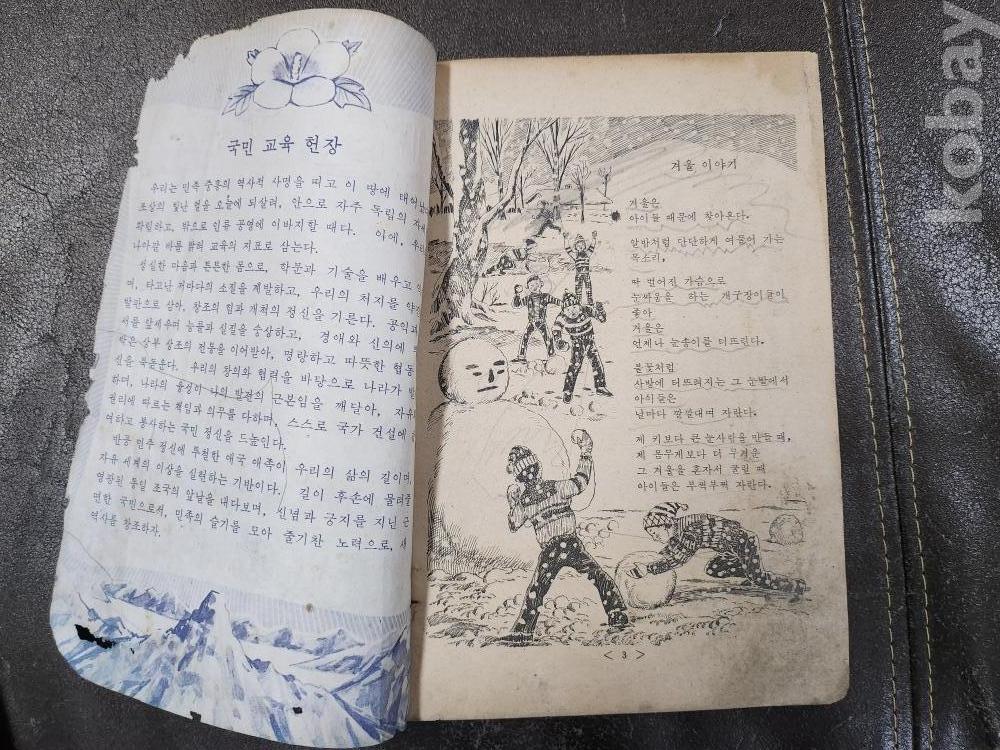 국민 교육 헌장
우리는 민족 중흥의 역사적 사명을 띠고 이 땅에
조상의 빛난 얼을 오늘에 되살려, 안으로 자주 독립의
확립하고, 밖으로 인류 공영에 이바지할 때다. 이에,
나아갈 바를 밝혀 교육의 지표로 삼는다.
성실한 마음과 튼튼한 몸으로, 학문과 기술을 배우고
며, 타고난 저마다의 소질을 계발하고, 우리의 처지를
발판으로 삼아, 창조의 힘과 개척의 정신을 기른다. 공익과
서를 앞세우며 능률과 실질을 숭상하고, 경애와 신의에
박은 상부 상조의 전통을 이어받아, 명랑하고 따뜻한 협동
신을 북돋운다. 우리의 창의와 협력을 바탕으로 나라가
하며, 나라의 융성이 나의 발전의 근본임을 깨달아,
권리에 따르는 책임과 의무를 다하며, 스스로 국가 건설에
여하고 봉사하는 국민 정신을 드높인다.
반공 민주 정신에 투철한 애국 애족이 우리의 삶의 길이며,
자유 세계의 이상을 실현하는 기반이다. 길이 후손에 물려줄
영광된 통일 조국의 앞날을 내다보며, 신념과 긍지를 지닌 근
면한 국민으로서, 민족의 슬기를 모아 줄기찬 노력으로, 새
역사를 창조하자.
겨울 이야기
겨울은
아이들 때문에 찾아온다.
알밤처럼 단단하게 여물어 가는
목소리,
딱 벌어진 가슴으로
눈싸움을 하는 개구장이들이
좋아
겨울은
언제나 눈송이를 터뜨린다.
불꽃처럼
산방에 터뜨려지는 그 눈발에서
아이들은
날마다 깔깔대며 자란다.
제 키보다 큰 눈사람을 만들 때,
제 몸무게보다 더 무거운
그 겨울을 혼자서 굴릴 때
아이들은 부쩍부쩍 자란다.
< 3 >
kobay